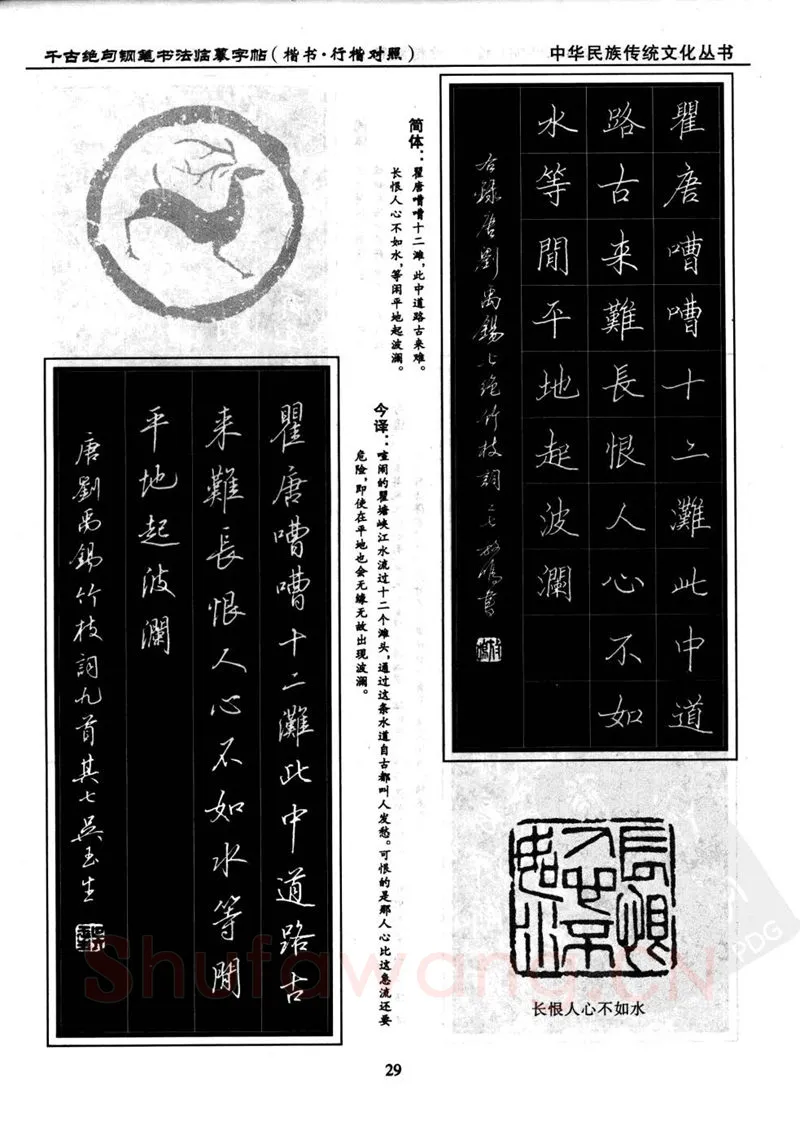 千古绝句钢笔书法临摹字帖(楷书·行楷对照)
中华民族传统文化丛书
瞿唐嘈嘈十二灘此中道
路古来難長恨人心不如
水等閒平地起波瀾
右録唐劉禹錫七絶竹枝詞之七
简体:瞿唐嘈嘈十二滩,此中道路古来难。
长恨人心不如水,等闲平地起波澜。
今译:喧闹的瞿塘峡江水流过十二个滩头,通过这条水道自古都叫人发愁。可恨的是那人心比这急流还要
危险,即使在平地也会无缘无故出现波澜。
瞿唐嘈嘈十二灘此中道路古
来難長恨人心不如水等閒
平地起波瀾
唐劉禹錫竹枝詞九首其七吴玉生
長恨人心不如水
长恨人心不如水
29
Shufawang.CN
PDG